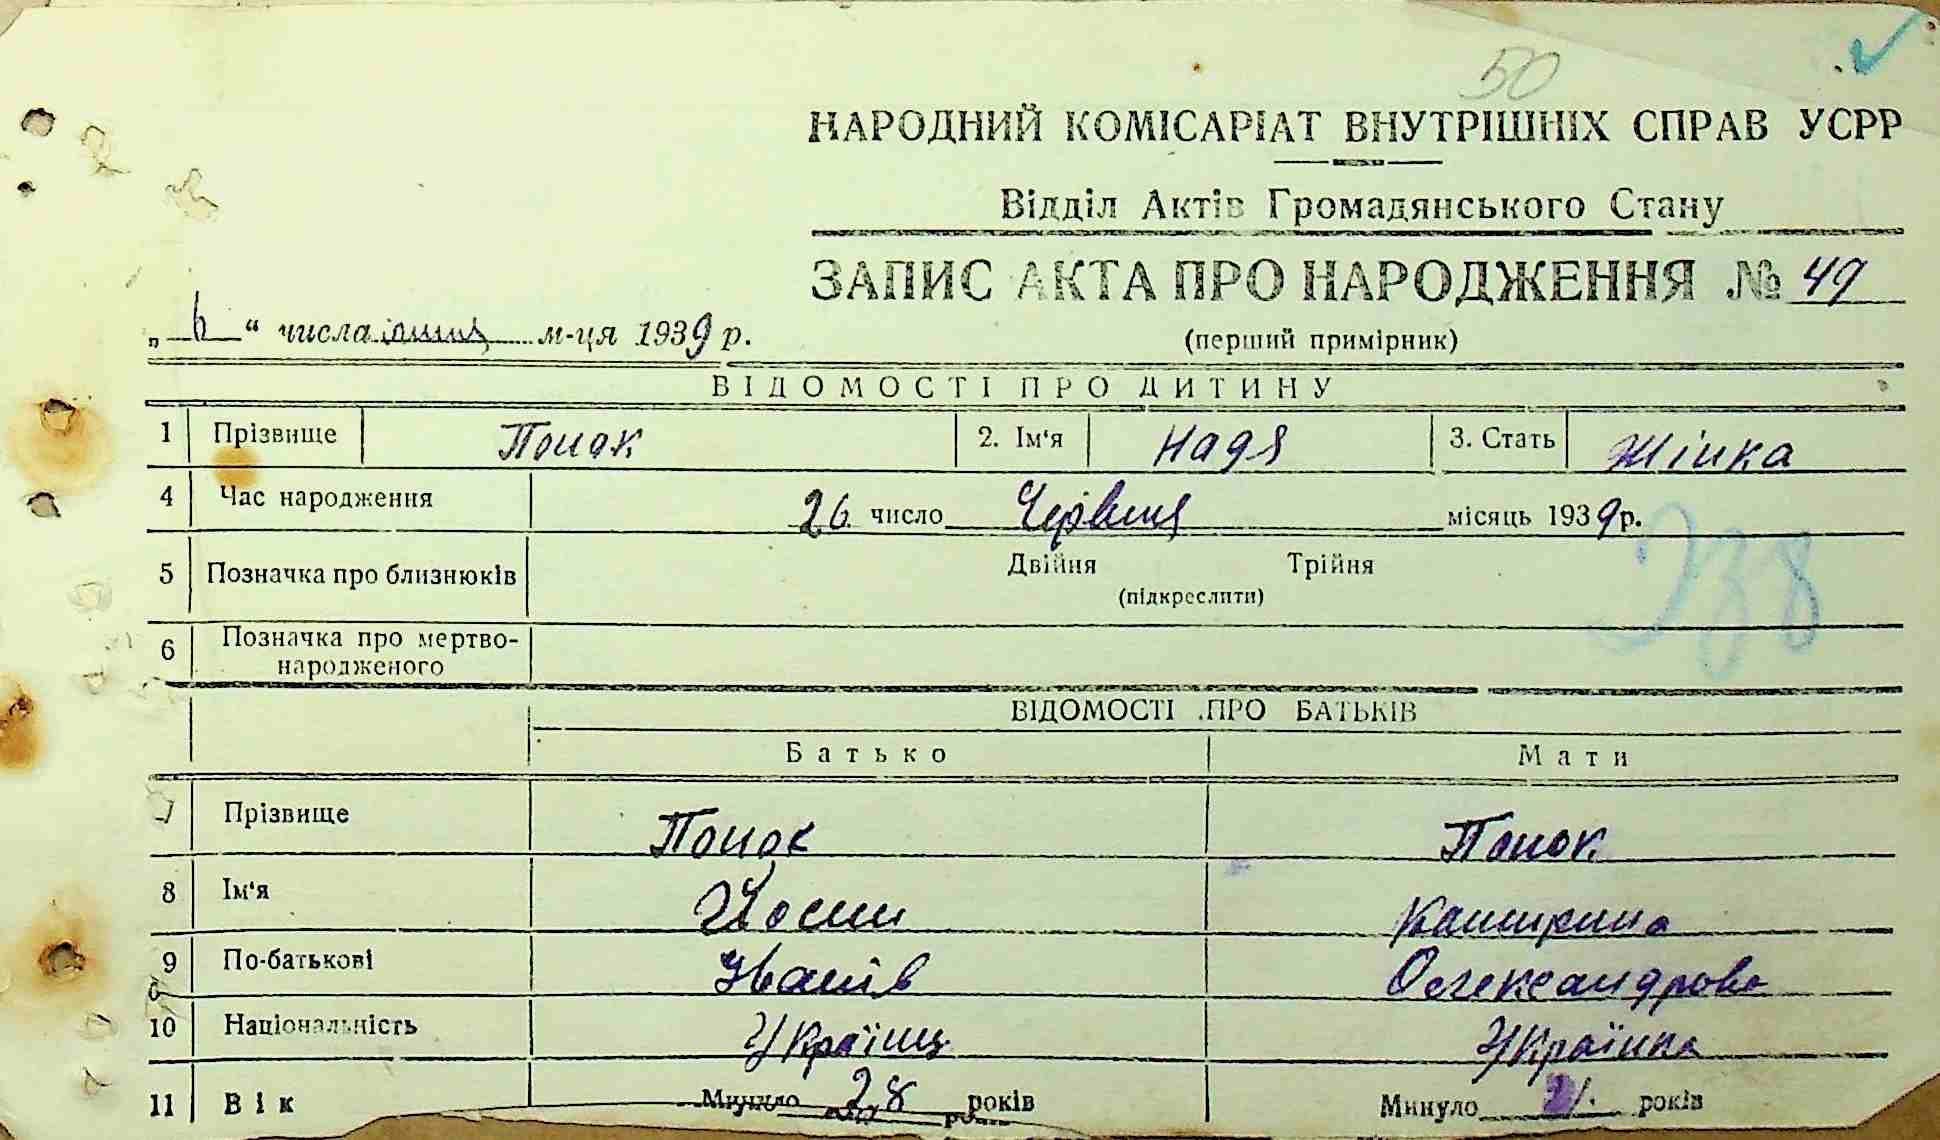 50
НАРОДНИЙ КОМІСАРІАТ ВНУТРІШНІХ СПРАВ УСРР
Відділ Актів Громадянського Стану
ЗАПИС АКТА ПРО НАРОДЖЕННЯ № 49
„ 6 “ числа м-ця 1939 р.
(перший примірник)
ВІДОМОСТІ ПРО ДИТИНУ
1 Прізвище 2. Ім'я Надя 3. Стать Жінка
4 Час народження 26 число Червня місяць 1939 р.
5 Позначка про близнюків Двійня Трійня
(підкреслити)
238
6 Позначка про мертво-
народженого
ВІДОМОСТІ ПРО БАТЬКІВ
Батько Мати
7 Прізвище
8 Ім'я
9 По-батькові Іванів Олександрова
10 Національність Українц Українка
11 Вік Минуло 28 років Минуло 21. років